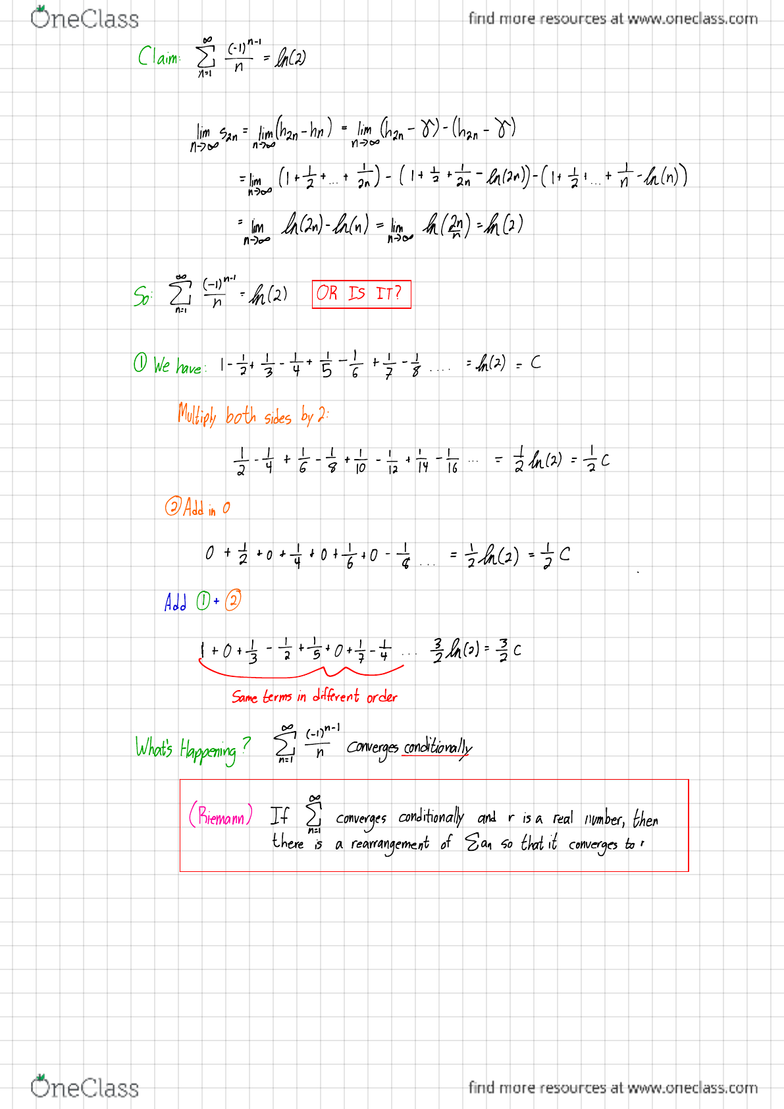 OneClass
find more resources at www.oneclass.com
Claim: ∑_{n=1}^{∞} (-1)^{n-1}/n = ln(2)
lim_{n→∞} s_{2n} = lim_{n→∞} (h_{2n} - h_n) = lim_{n→∞} (h_{2n} - γ) - (h_{2n} - γ)
= lim_{n→∞} (1 + 1/2 + ... + 1/2n) - (1 + 1/2 + 1/2n - ln(2n)) - (1 + 1/2 + ... + 1/n - ln(n))
= lim_{n→∞} ln(2n) - ln(n) = lim_{n→∞} ln(2n/n) = ln(2)
So: ∑_{n=1}^{∞} (-1)^{n-1}/n = ln(2) OR IS IT?
① We have: 1 - 1/2 + 1/3 - 1/4 + 1/5 - 1/6 + 1/7 - 1/8 .... = ln(2) = C
Multiply both sides by 2:
1/2 - 1/4 + 1/6 - 1/8 + 1/10 - 1/12 + 1/14 - 1/16 ... = 1/2 ln(2) = 1/2 C
② Add in 0
0 + 1/2 + 0 + 1/4 + 0 + 1/6 + 0 - 1/8 ... = 1/2 ln(2) = 1/2 C
Add ① + ②
1 + 0 + 1/3 - 1/2 + 1/5 + 0 + 1/7 - 1/4 ... 3/2 ln(2) = 3/2 C
Same terms in different order
What's Happening? ∑_{n=1}^{∞} (-1)^{n-1}/n converges conditionally
(Riemann) If ∑_{n=1}^{∞} converges conditionally and r is a real number, then
there is a rearrangement of ∑an so that it converges to r
OneClass
find more resources at www.oneclass.com